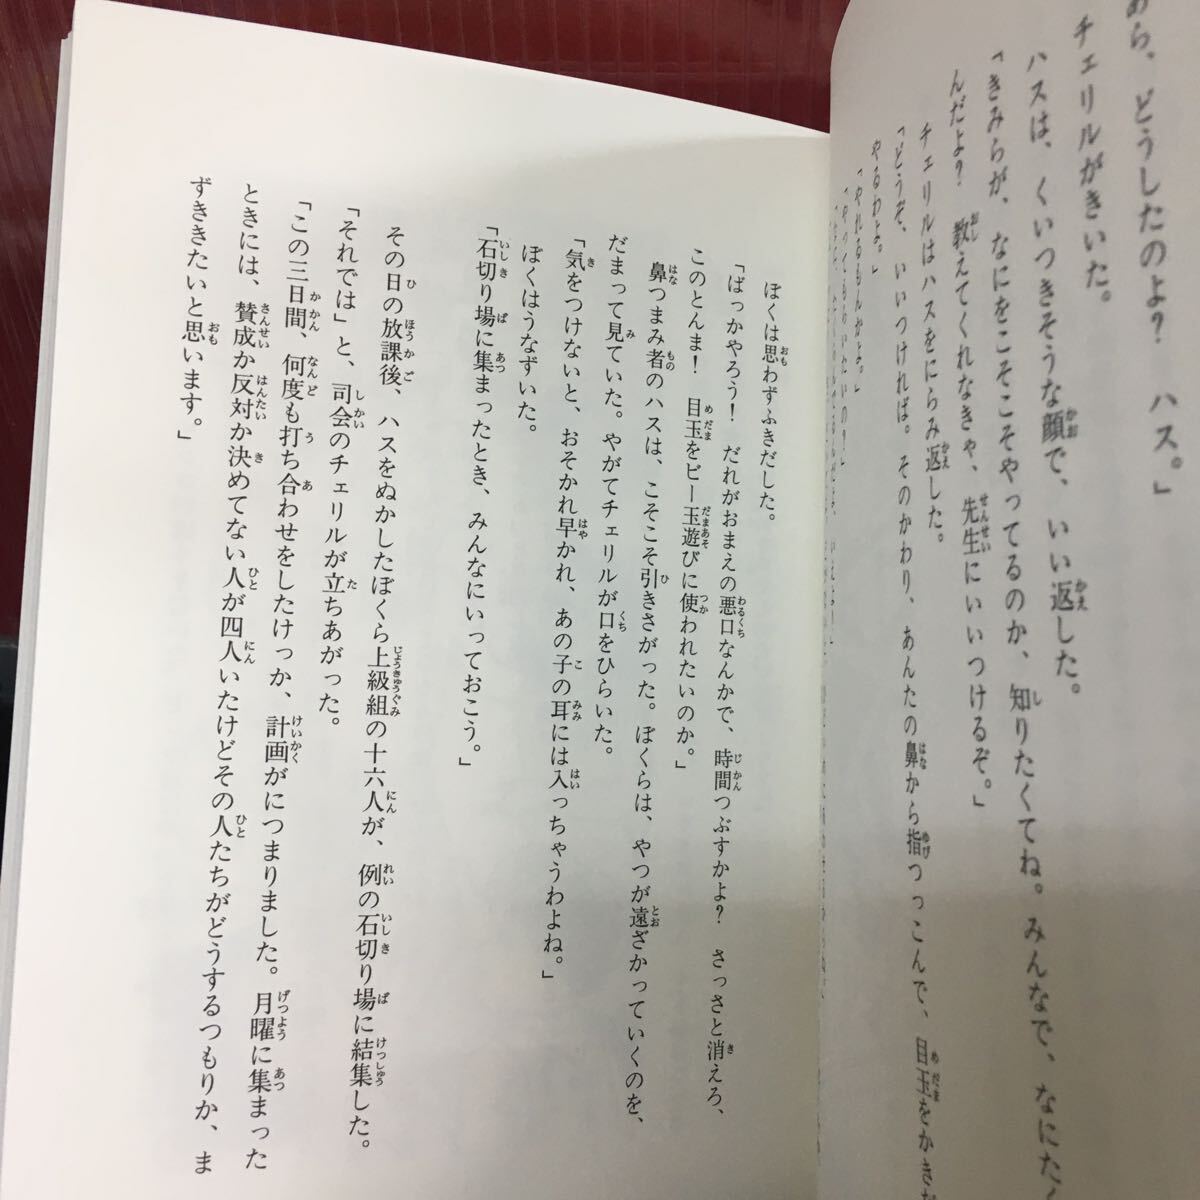 あら、どうしたのよ？　ハス。」
チェリルがきいた。
ハスは、くいつきそうな顔で、いい返した。
「きみらが、なにをこそこそやってるのか、知りたくてね。みんなで、なにた
んだよ？　教えてくれなきゃ、先生にいいつけるぞ。」
チェリルはハスをにらみ返した。
「どうぞ、いいつければ。そのかわり、あんたの鼻から指つっこんで、目玉をかきだ
やるわよ。」
「やれるもんかよ。」
「やってもらいたいの？」
ぼくは思わずふきだした。
「ばっかやろう！　だれがおまえの悪口なんかで、時間つぶすかよ？　さっさと消えろ、
このとんま！　目玉をビー玉遊びに使われたいのか。」
鼻つまみ者のハスは、こそこそ引きさがった。ぼくらは、やつが遠ざかっていくのを、
だまって見ていた。やがてチェリルが口をひらいた。
「気をつけないと、おそかれ早かれ、あの子の耳には入っちゃうわよね。」
ぼくはうなずいた。
「石切り場に集まったとき、みんなにいっておこう。」
その日の放課後、ハスをぬかしたぼくら上級組の十六人が、例の石切り場に結集した。
「それでは」と、司会のチェリルが立ちあがった。
「この三日間、何度も打ち合わせをしたけっか、計画がにつまりました。月曜に集まった
ときには、賛成か反対か決めてない人が四人いたけどその人たちがどうするつもりか、ま
ずききたいと思います。」